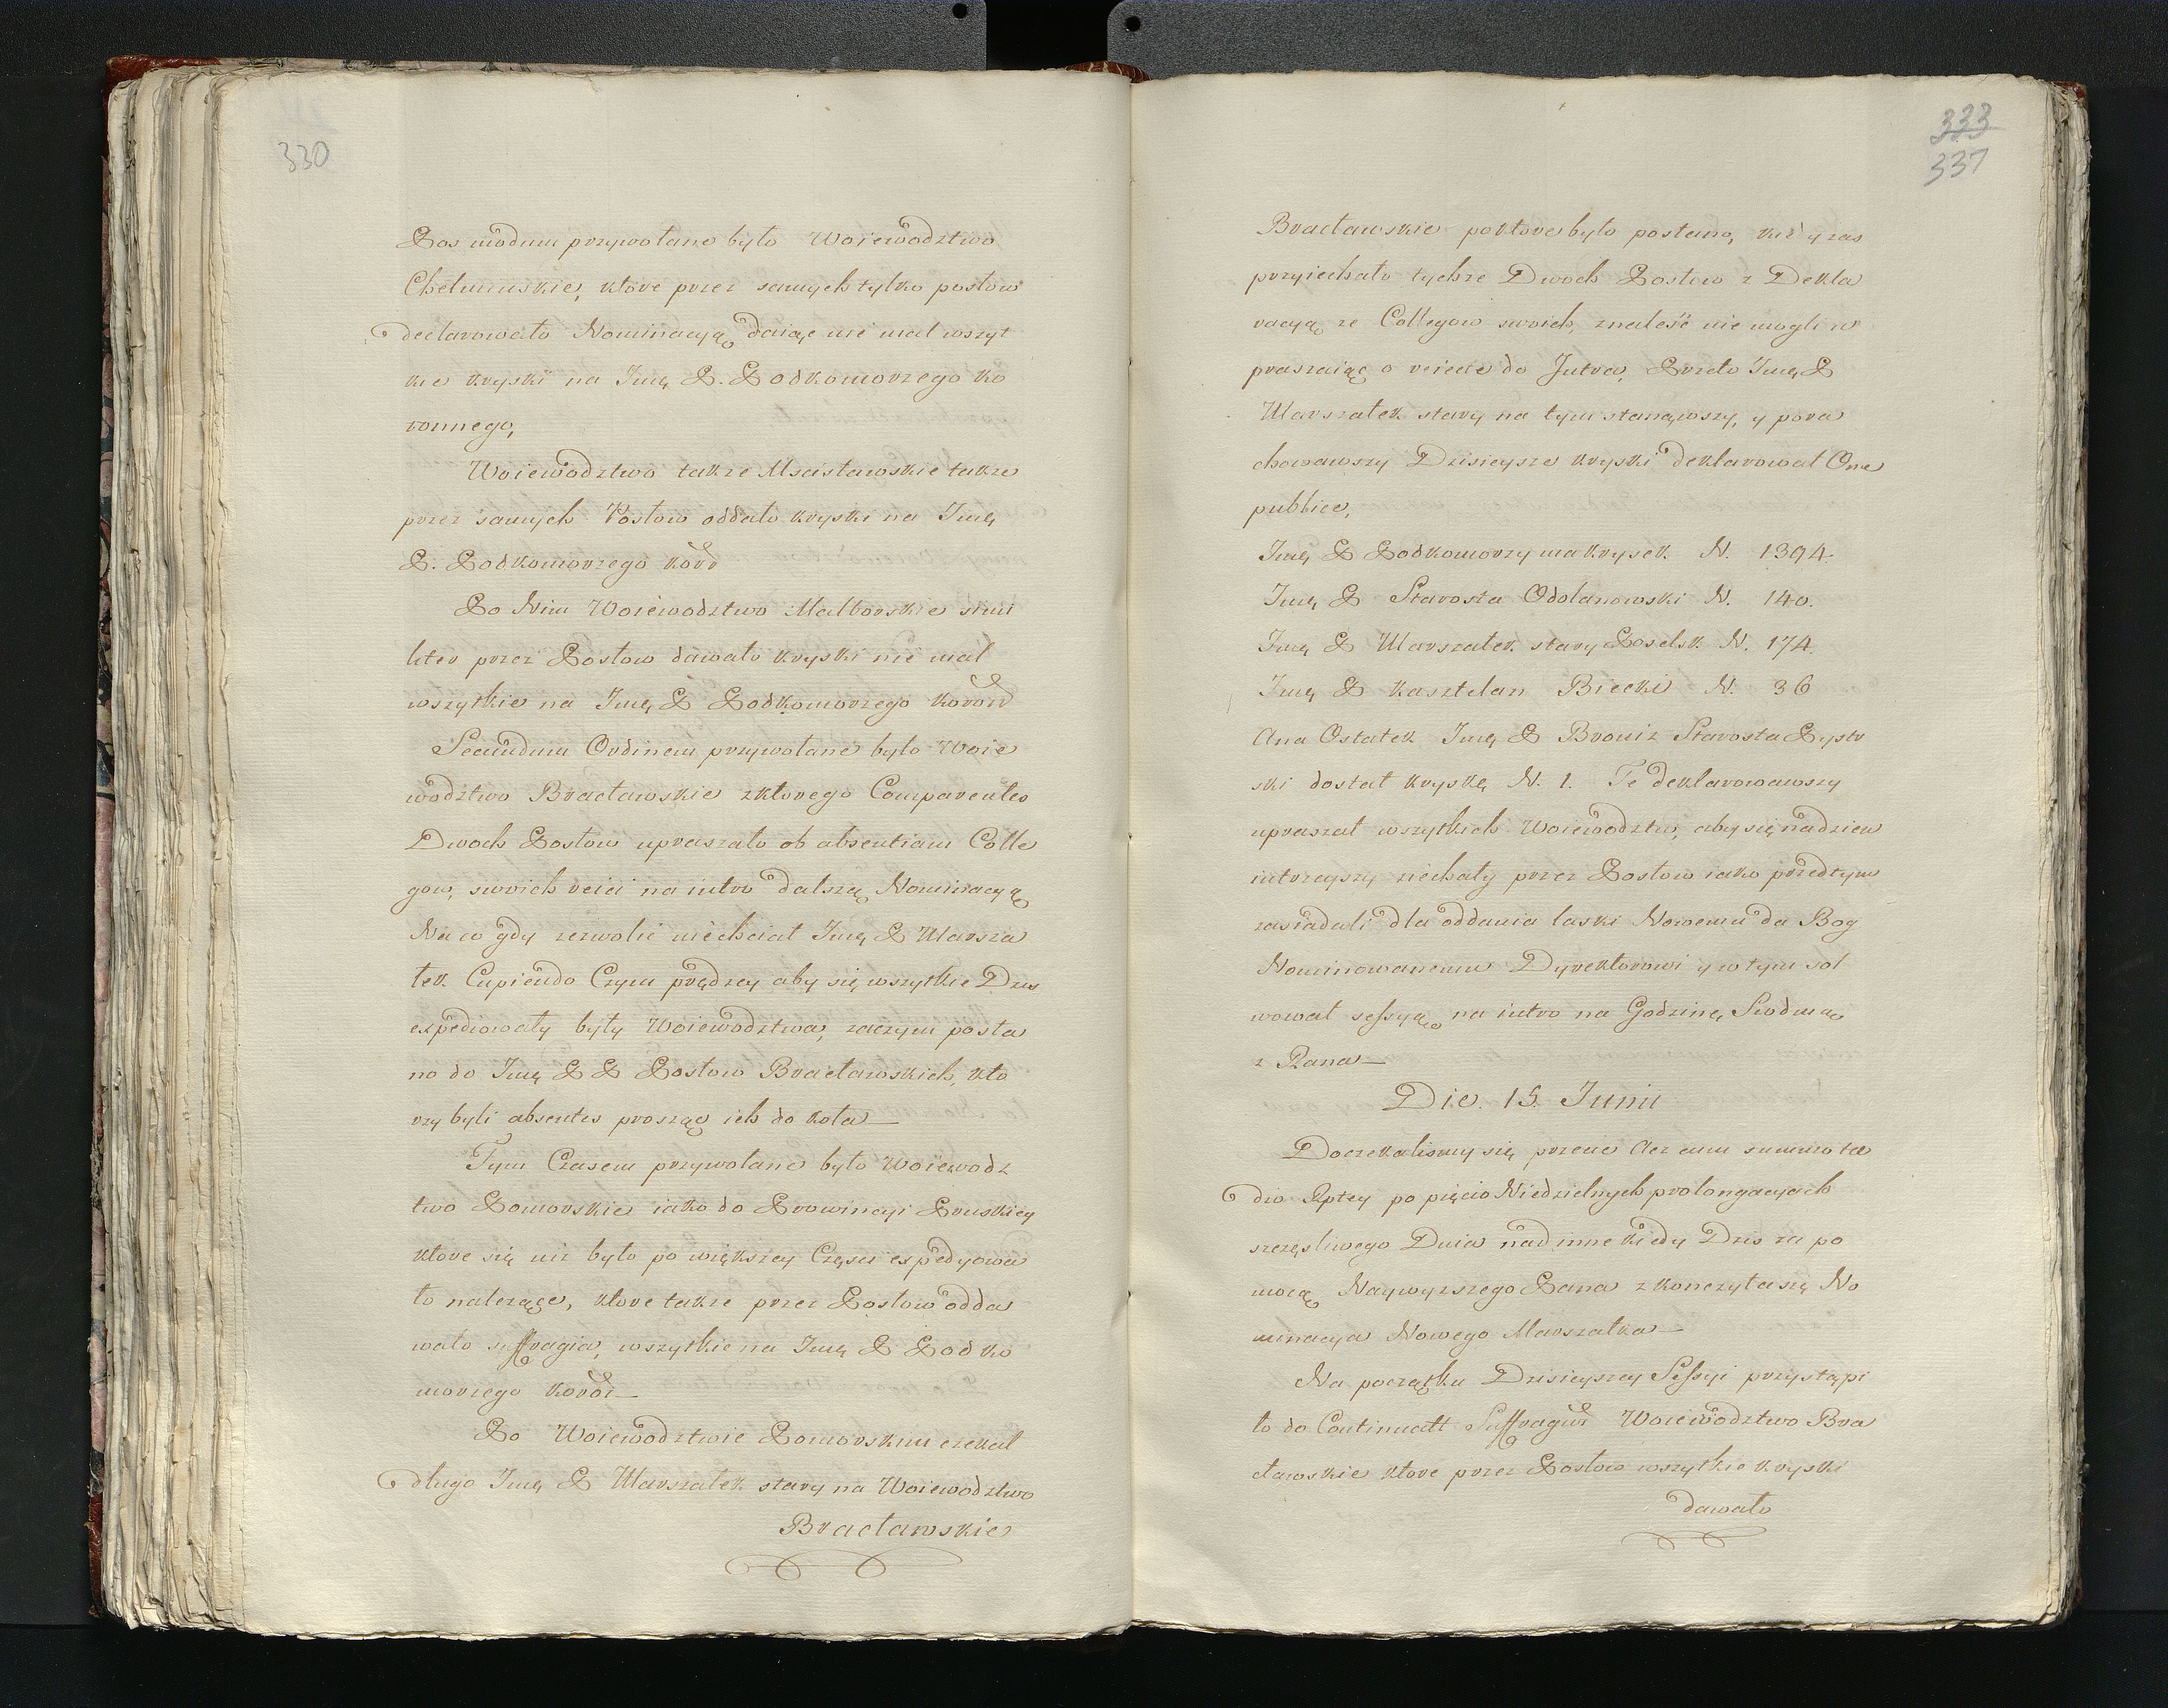 330
Pos modum przywołane było Woiewodztwo
Chełminskie, ktore przez samych tylko posłow
declarowało Nominacyą daiąc nie mal wszyt
kie kryski na Jmę P. Podkomorzego ko
ronnego,
Woiewodztwo takze Mscisławskie takze
przez samych Posłow oddało kryski na Jmę
P. Podkomorzego kor
Po Nim Woiewodztwo Malborskie simi
liter przez Posłow dawało kryski nie mal
wszytkie na Jmę P Podkomorzego koron
Secundum Ordinem przywołane było Woie
wodztwo Bracławskie zktorego Comparentes
Dwoch Posłow upraszało ob absentiam Colle
gow, swoich reici na iutro dalszą Nominacyą
Na co gdy zezwolic niechciał Jmę P Marsza
łek Cupiendo Czym prędzey aby się wszytkie Dzis
expediowały były Woiewodztwa, zaczym posła
no do Jmę P P Posłow Bracławskich, kto
rzy byli absentes prosząc ich do koła
Tym Czasem przywołane było Woiewodz
two Pomorskie iako do Prowincyi Pruskiey
ktore się iuz było po większey Częsci expedyowa
ło nalezące, ktore takze przez Posłow odda
wało suffragia, wszytkie na Jmę P Podko
morzego koron
Po Woiewodztwie Pomorskim czekał
długo Jmę P Marszałek stary na Woiewodztwo
Bracławskie
333
337
Bracławskie poktore było posłano, kiedy zas
przyiechało tychze Dwoch Posłow z Dekla
racyą ze Collegow swoich, znaleść nie mogli u
praszaiąc o reiecie do Jutra, Przeto Jmę P
Marszałek stary na tym stanąwszy, y pora
chowawszy Dzisieysze kryski deklarował One
publice,
Jmę P Podkomorzy ma krysek N. 1394.
Jmę P Starosta Odolanowski N. 140.
Jmę P Marszałek stary Poselsk N. 174.
Jmę P Kasztelan Biecki N. 36
Ana Ostatek Jmę P Broniz Starosta Pyzdr
ski dostał kryskę N. 1. Te deklarowawszy
upraszał wszytkich Woiewodztw, aby się nadzien
iutrzeyszy ziechały przez Posłow iako przedtym
zasiadali dla oddania laski Nowemu da Bog
Nominowanemu Dyrektorowi y w tym sol
wował sessyą na iutro na Godzinę Siodmą
z Rana
Die. 15. Junii
Doczekalismy się przecie acz cum summo tæ
dio Rptey po pięcio Niedzielnych prolongacyach
szczęsliwego Dnia nad inne kiedy Dzis za po
mocą Naywyzszego Pana zkonczyła się No
minacya Nowego Marszałka
Na początku Dzisieyszey Sessyi przystąpi
ło do Continuatt Suffragior Woiewodztwo Bra
cławskie ktore przez Posłow wszytkie kryski
dawało